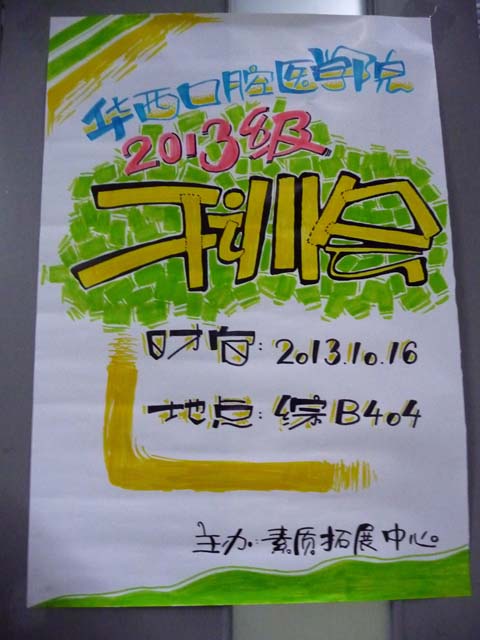 华西口腔医学院
2013级
开训会
时间:2013.10.16
地点:综B404
主办:素质拓展中心